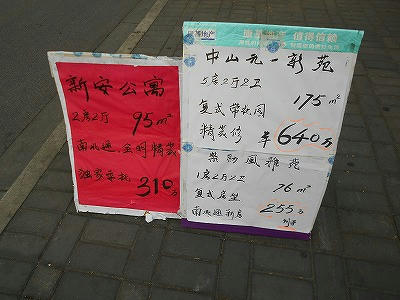 新安公寓
2房2厅 95m²
南北通,全明精装
独家委托 310万
地产 值得信赖
中山元一新苑
5房2厅2卫
175m²
复式带花园
精装修 售640万
紫郡风雅苑
1房2厅2卫
76m²
复式房型
南北通新房 255万